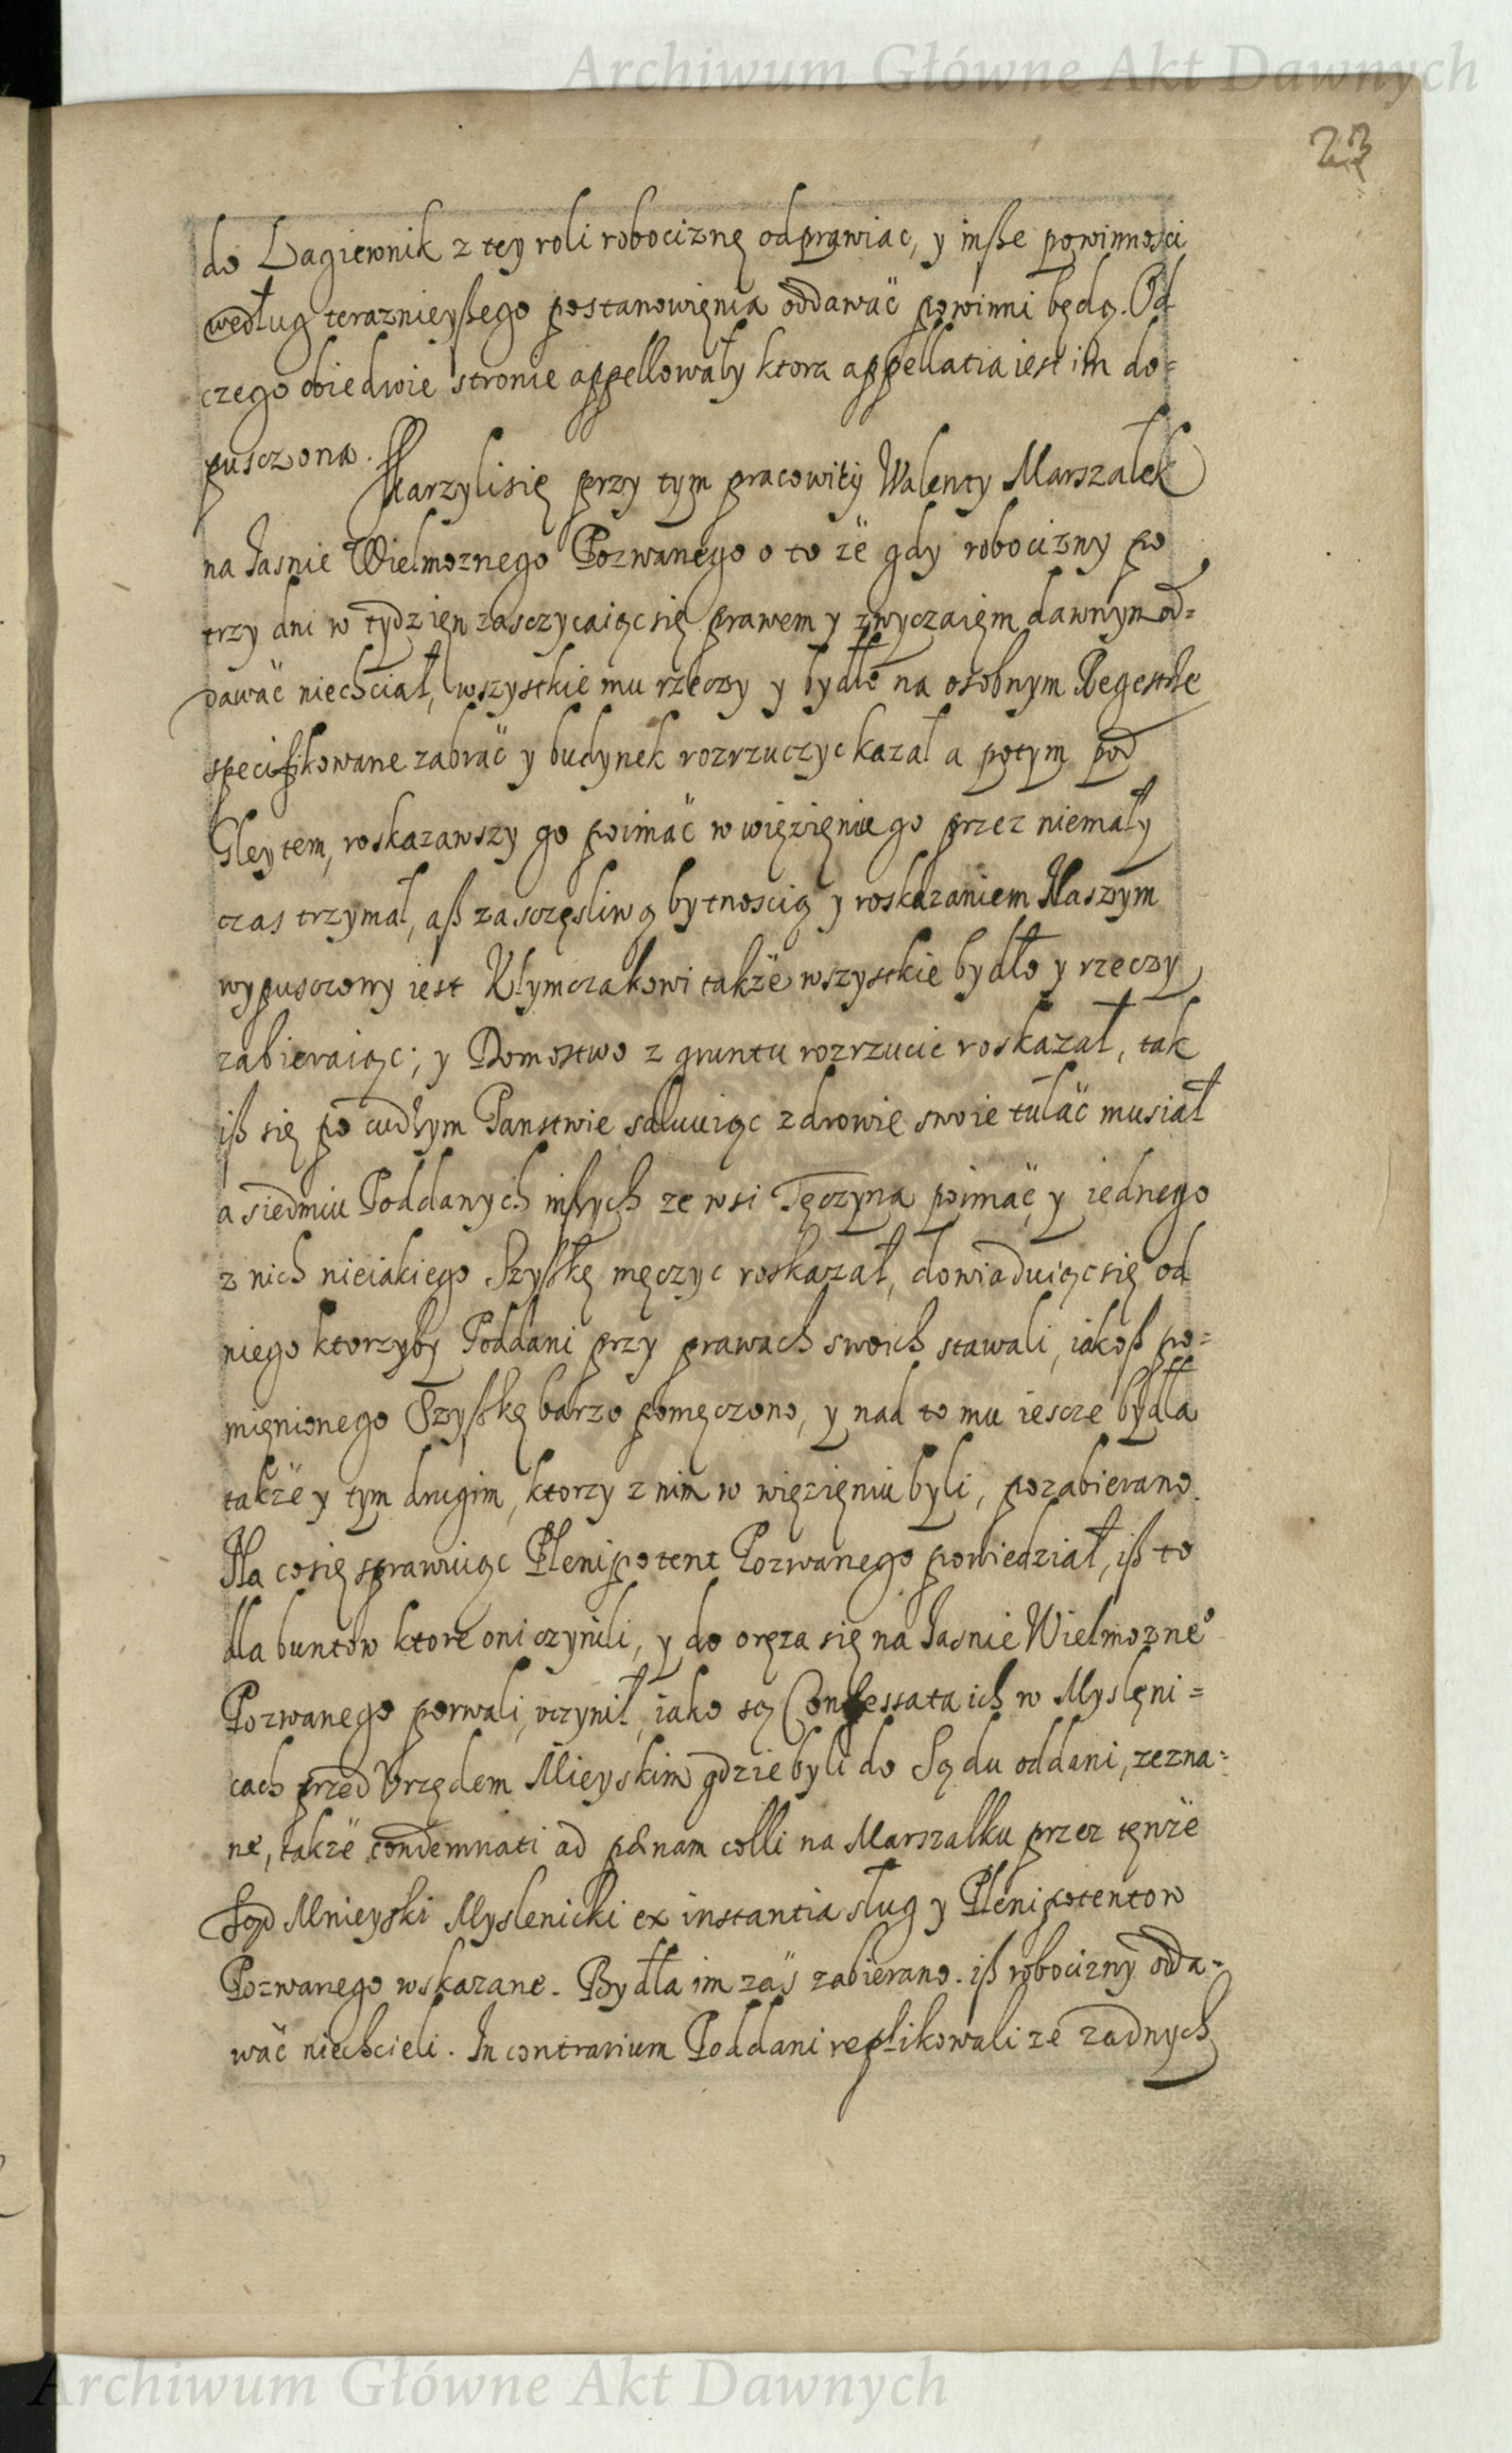 Archiwum Główne Akt Dawnych
23
do Łagiewnik z tey roli robociznę odprawiac, y inße powinności
według teraznieyßego postanowięnia oddawać powinni będą. Od
czego obiedwie stronie appellowały ktora appellatia iest im do=
pusczona.
Skarzyli się przy tym pracowity Walenty Marszałek
na Jasnie Wielmoznego Pozwanego o to że gdy robocizny po
trzy dni w tydzięn zasczycaiąc się prawem y zwyczaięm dawnym od=
dawać niechciał, wszystkie mu rzeczy y bydłe na osobnym Regestrze
specifikowane zabrać y budynek rozrzuczyc kazał a potym pod
Gleytem, roskazawszy go poimać w więzięniu go przez niemały
czas trzymał, aß za sczęsliwą bytnoscią y roskazaniem Naszym
wypusczony iest Klymczakowi także wszystkie bydło y rzeczy
zabieraiąc; y Domostwo z gruntu rozrzucic roskazał, tak
iß się po cudzym Panstwie salwuiąc zdrowie swoie tułać musiał
a siedmiu Poddanych inßych ze wsi Tęczyna poimać y iednego
z nich nieiakiego Szyßkę męczyc roskazał, dowiaduiąc się od
niego ktorzyby Poddani przy prawach swoich stawali, iakoß po=
mięnionego Szyßkę barzo pomęczono, y nad to mu iescze bydła
także y tym drugim, ktorzy z nim w więzięniu byli, pozabierano.
Na co się sprawuiąc Plenipotent Pozwanego powiedział, iß to
dla buntow ktore oni czynili, y do oręza się na Jasnie Wielmozne°
Pozwanego porwali, uczynił, iako są Confessata ich w Myslęni=
cach przed Urzędem Mieyskim gdzie byli do Sądu oddani, zezna=
ne, także condemnati ad pænam colli na Marszalku przez tęnże
Sąd Mnieyski Myslenicki ex instantia sług y Plenipotentow
Pozwanego wskazane. Bydła im zaś zabierano. iß robocizny odda=
wać niechcieli. In contrarium Poddani replikowali ze zadnych
Archiwum Główne Akt Dawnych